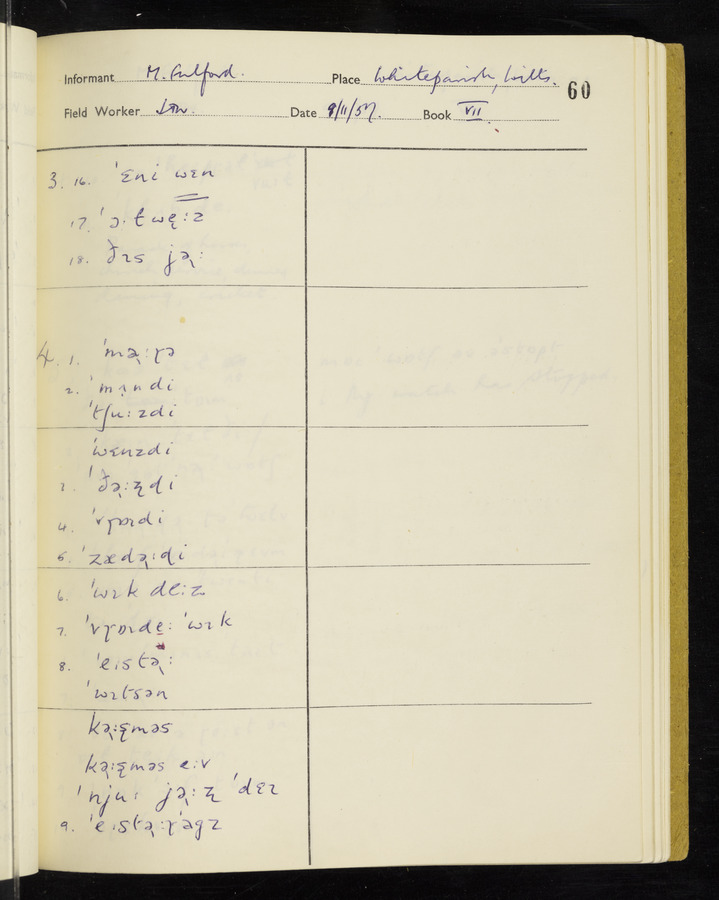 Informant M. Fulford. Place Whiteparish, Wilts. 60
Field Worker Date 9/11/57. Book VII
3. 16. ˈɛni wɛn
17. ˈɔ·twę:z
18. ðɪs jə̢:
4. 1. ˈmə̢:ɽə
2. ˈmʌ̣ndi
ˈtʃu:zdi
ˈwɛnzdi
3. ˈðə̢:ʐdi
4. ˈvɽɒɪdi
5. ˈzædə̢:di
6. ˈwɪk de:z
7. ˈvɽɒɪde̱: ˈwɪk
8. ˈeistə̢:
ˈwɪtsən
kə̢:ʂməs
kə̢:ʂməs e:v
ˈnju: jə̢:ʐ ˈdɛɪ
9. ˈeistə̢:ɽˈɛgz